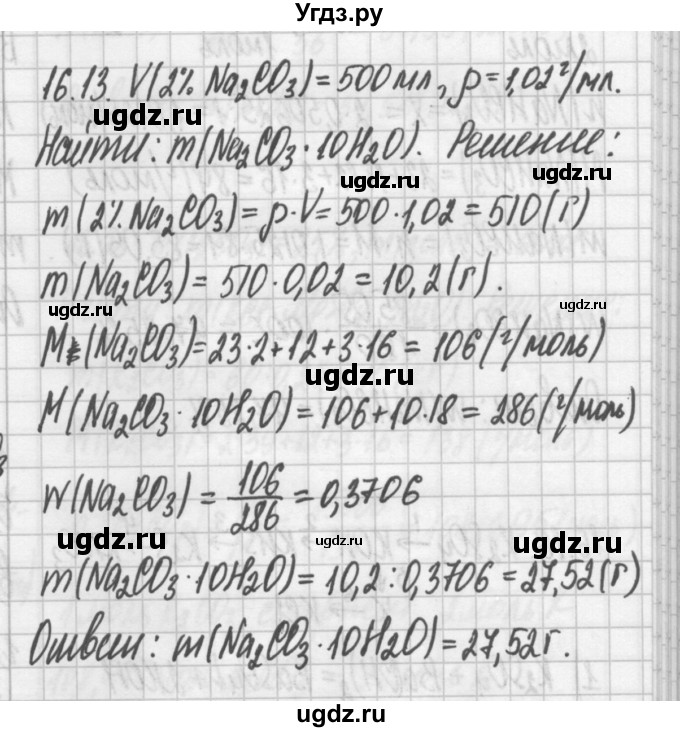 Угдз.ру
16.13. V(2% Na₂CO₃) = 500 мл, ρ = 1,02 г/мл.
ugdz.ru
Найти: m(Na₂CO₃·10H₂O). Решение:
ugdz.ru ugdz.ru
m(2% Na₂CO₃) = ρ·V = 500·1,02 = 510(г)
ugdz.ru
m(Na₂CO₃) = 510·0,02 = 10,2(г).
ugdz.ru ugdz.ru
M (Na₂CO₃) = 23·2+12+3·16 = 106(г/моль)
ugdz.ru
M(Na₂CO₃·10H₂O) = 106+10·18 = 286(г/моль)
W(Na₂CO₃) = 106/286 = 0,3706
ugdz.ru ugdz.ru ugdz.ru
m(Na₂CO₃·10H₂O) = 10,2:0,3706 = 27,52(г)
Ответ: m(Na₂CO₃·10H₂O) = 27,52г.
ugdz.ru
ugdz.ru ugdz.ru
ugdz.ru